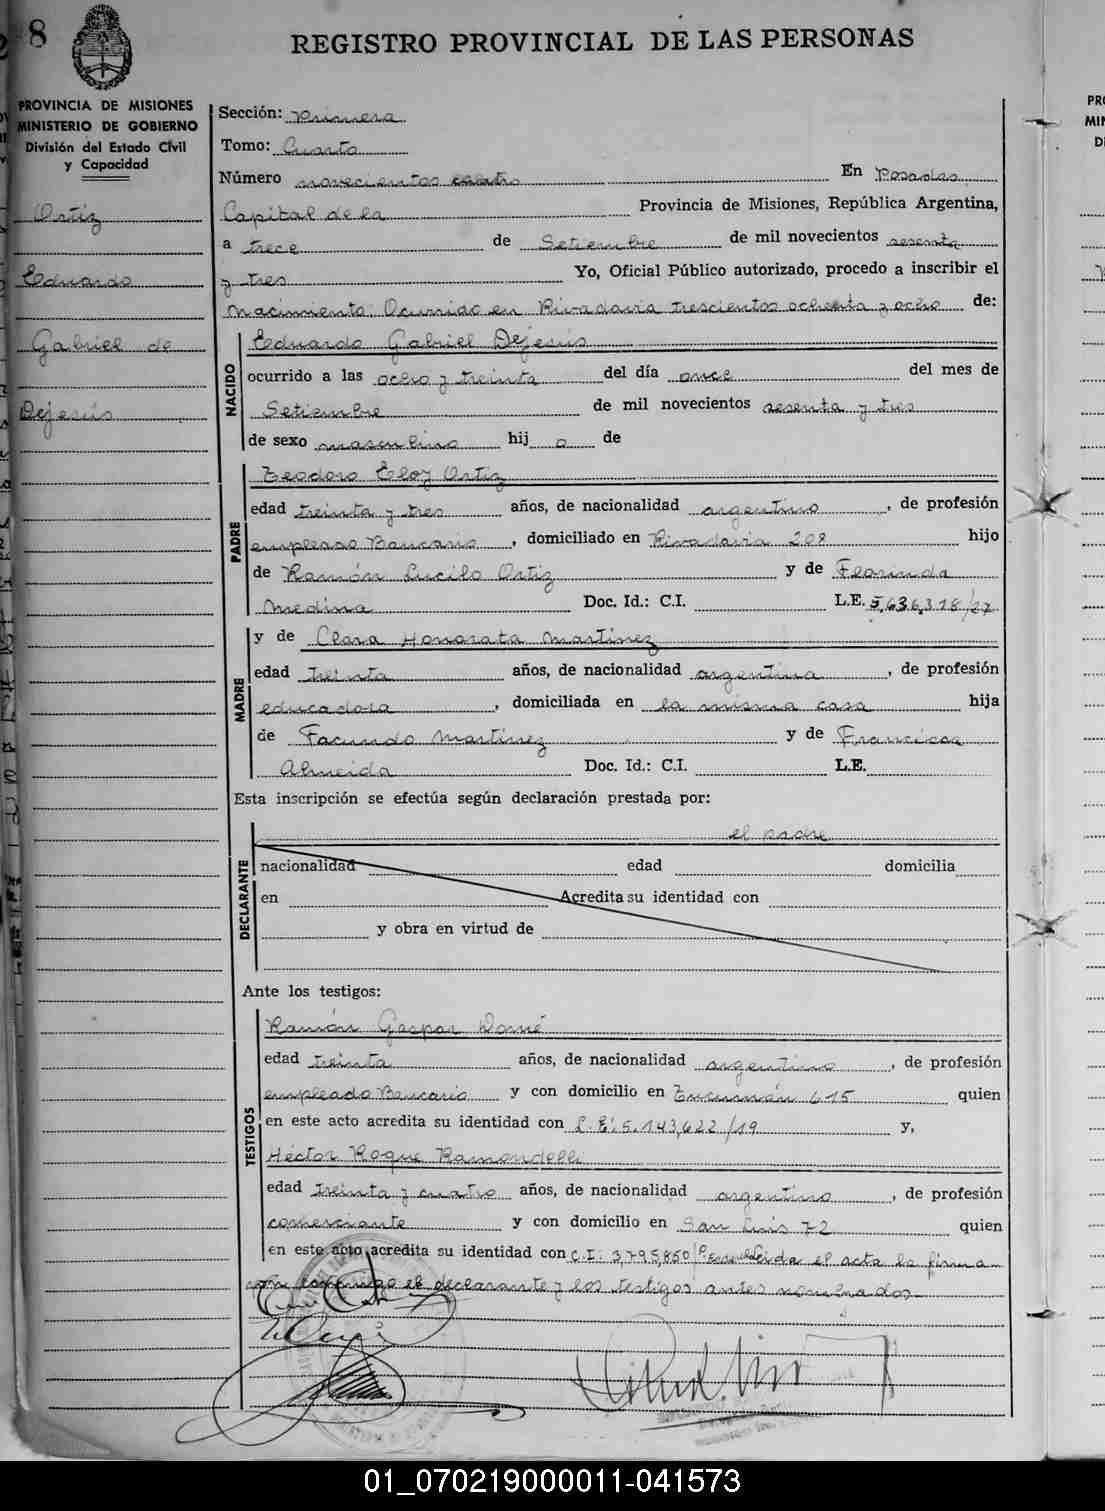 8
REGISTRO PROVINCIAL DE LAS PERSONAS
PROVINCIA DE MISIONES
MINISTERIO DE GOBIERNO
División del Estado Civil
y Capacidad
Ortiz
Eduardo
Gabriel de
Dejesús
Sección: Primera
Tomo: Cuarto
Número novecientos cuatro En Posadas
Capital de la Provincia de Misiones, República Argentina,
a trece de Setiembre de mil novecientos sesenta
y tres Yo, Oficial Público autorizado, procedo a inscribir el
nacimiento Ocurrido en Rivadavia trescientos ochenta y ocho de:
NACIDO
Eduardo Gabriel Dejesús
ocurrido a las ocho y treinta del día once del mes de
Setiembre de mil novecientos sesenta y tres
de sexo masculino hij o de
PADRE
Teodoro Eloy Ortiz
edad treinta y tres años, de nacionalidad argentino, de profesión
empleado Bancario, domiciliado en Rivadavia 208 hijo
de Ramón Lucilo Ortiz y de Florinda
Medina Doc. Id.: C.I. L.E. 5,636,318/27
MADRE
y de Clara Honorata Martinez
edad treinta años, de nacionalidad argentina, de profesión
educadora, domiciliada en la misma casa hija
de Facundo Martinez y de Francisca
Almeida Doc. Id.: C.I. L.E.
Esta inscripción se efectúa según declaración prestada por:
DECLARANTE
el padre
nacionalidad edad domicilia
en Acredita su identidad con
y obra en virtud de
Ante los testigos:
TESTIGOS
Ramón Gaspar Domé
edad treinta años, de nacionalidad argentino, de profesión
empleado Bancario y con domicilio en Tucumán 615 quien
en este acto acredita su identidad con L.E: 5.143,622/19 y,
Héctor Roque Ramondelli
edad treinta y cuatro años, de nacionalidad argentino, de profesión
comerciante y con domicilio en San Luis 72 quien
en este acto acredita su identidad con C.I: 3,795,850 leida el acta la firman
con conmigo el declarante y los testigos antes nombrados.
01_070219000011-041573